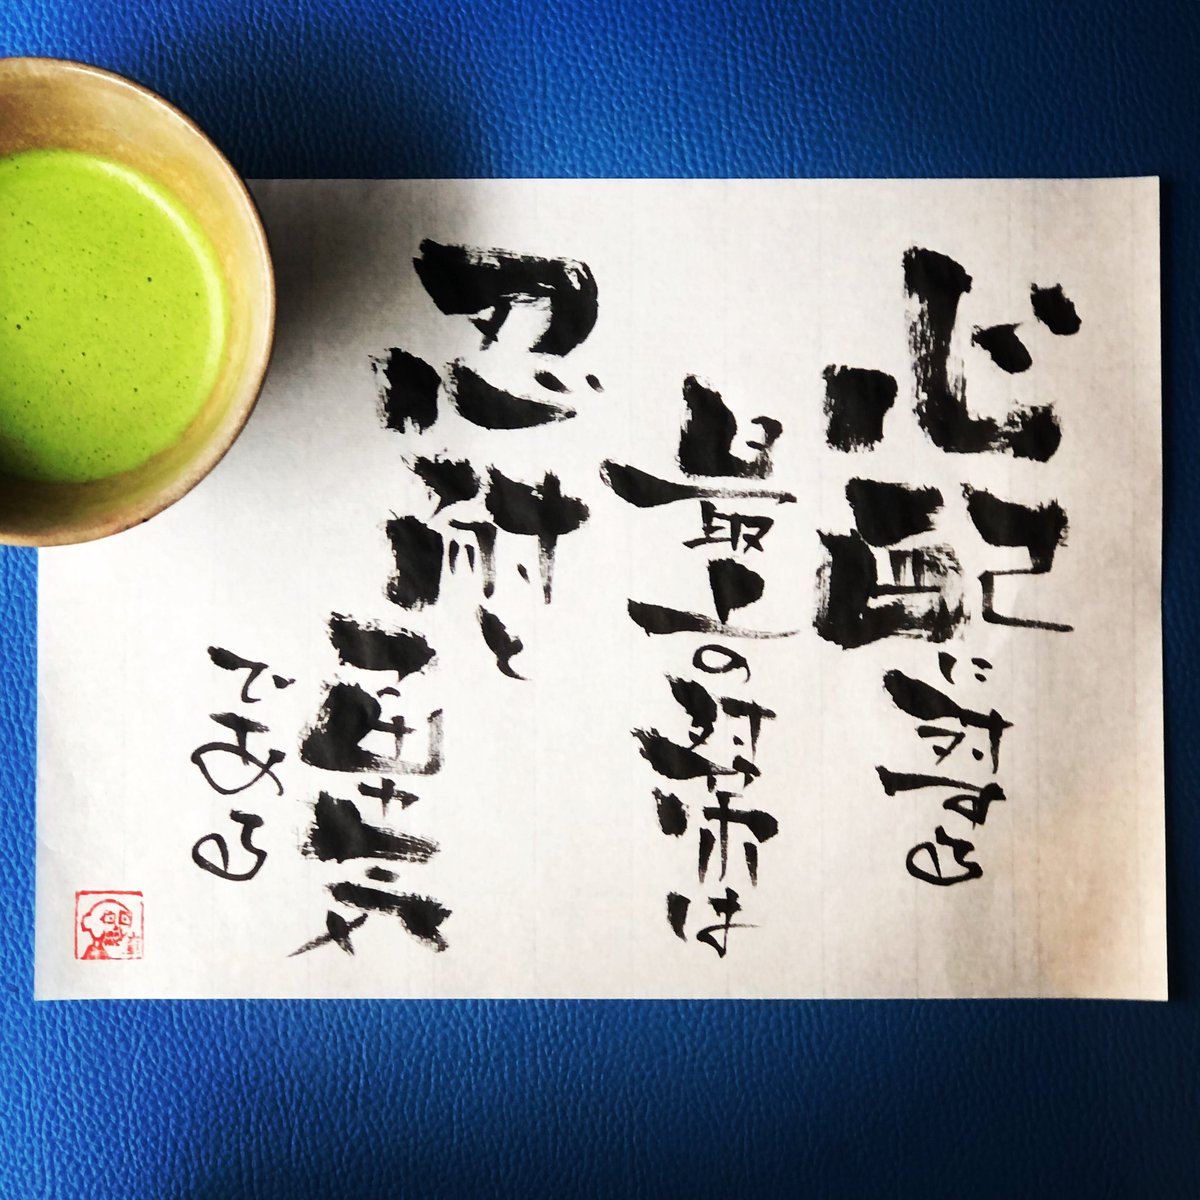 心配に対する
最上の対策は
忍耐と
である